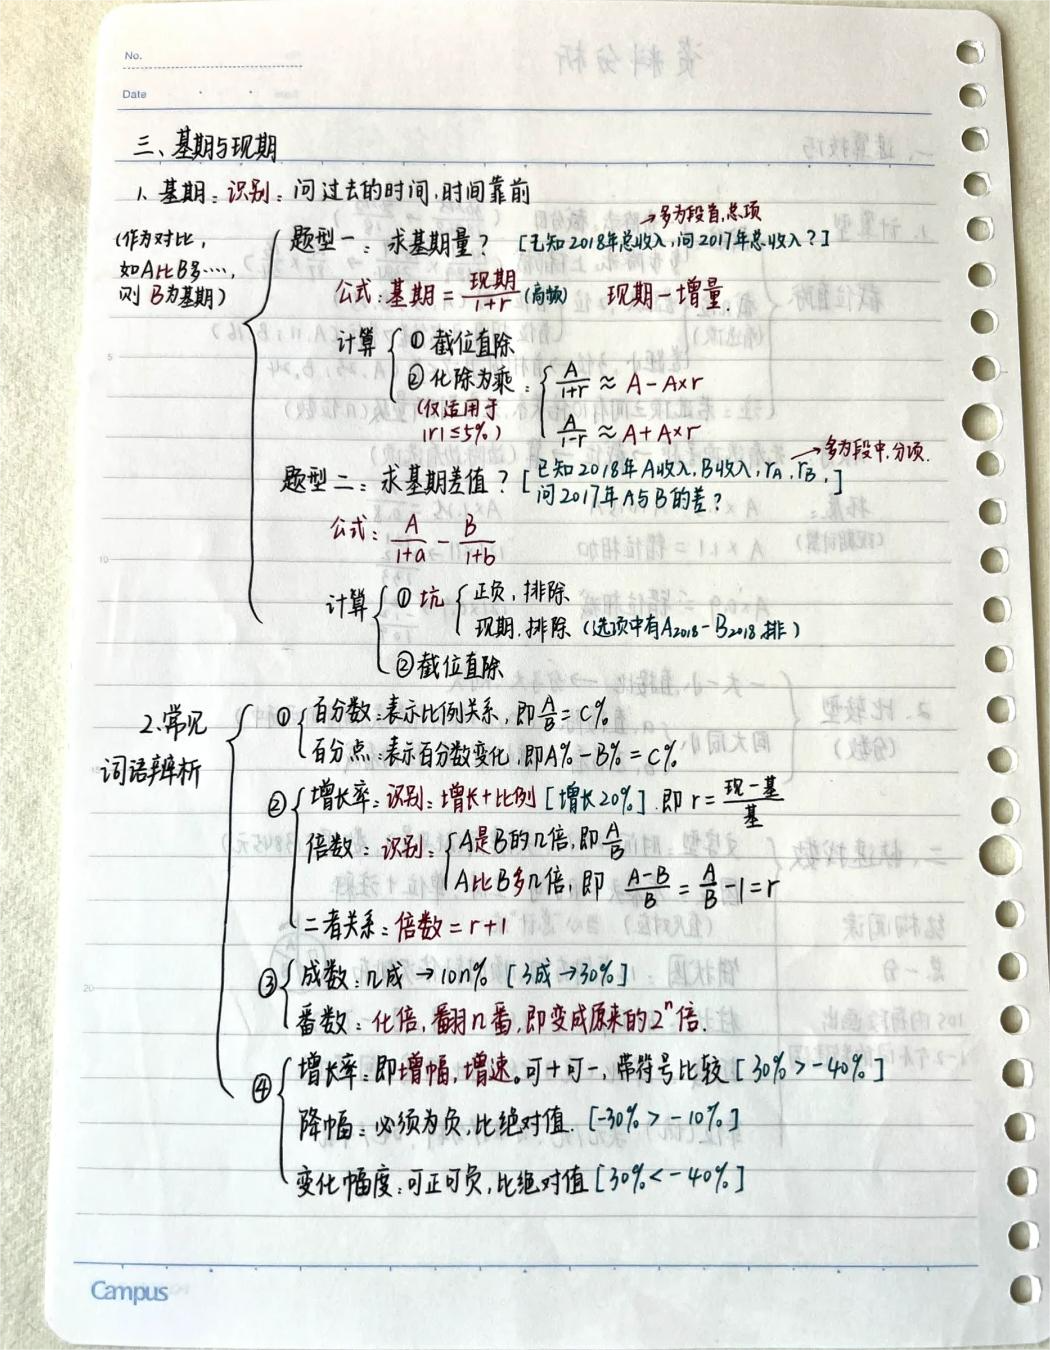 No.
Date
三、基期与现期
1、基期：识别：问过去的时间，时间靠前
(作为对比，
如A比B多……，
则B为基期)
→多为段首，总项
题型一：求基期量？[已知2018年总收入，问2017年总收入？]
公式：基期=现期/1+r(高频) 现期-增量.
计算 ①截位直除
②化除为乘：A/1+r ≈ A-A×r
(仅适用于
|r|≤5%) A/1-r ≈ A+A×r
→多为段中，分项.
题型二：求基期差值？[已知2018年A收入，B收入，rA，rB，
问2017年A与B的差？]
公式：A/1+a - B/1+b
计算 ①坑 正负，排除
现期，排除(选项中有A2018-B2018，排)
②截位直除
2.常见
词语辨析
①百分数：表示比例关系，即A/B=C%
百分点：表示百分数变化，即A%-B%=C%
②增长率：识别：增长+比例[增长20%].即r=现-基/基
倍数：识别：A是B的n倍，即A/B
A比B多n倍，即 A-B/B=A/B-1=r
二者关系：倍数=r+1
③成数：n成→10n% [3成→30%]
番数：化倍，翻n番，即变成原来的2ⁿ倍.
④增长率：即增幅，增速。可+可-，带符号比较[30%>-40%]
降幅：必须为负，比绝对值.[-30%>-10%]
变化幅度：可正可负，比绝对值[30%<-40%]
5
10
20
Campus